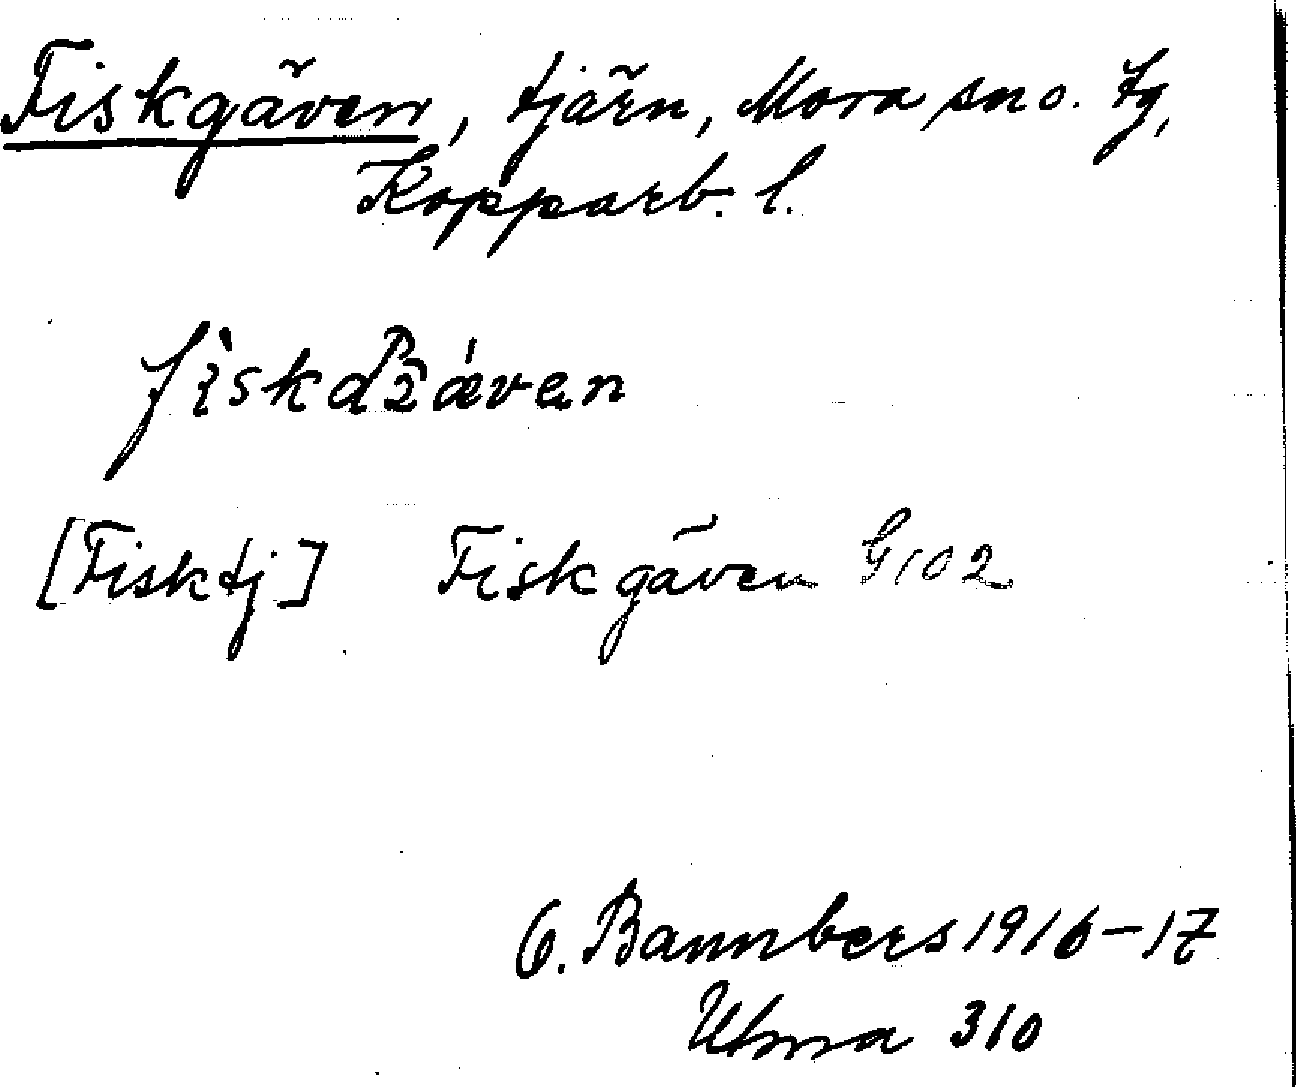 Fiskgäven, tjärn, Mora sn o. tg,
Kopparb. l.
[Fisktj] Fiskgäven G102
O. Bannbers 1916-17
Utm̃a 310